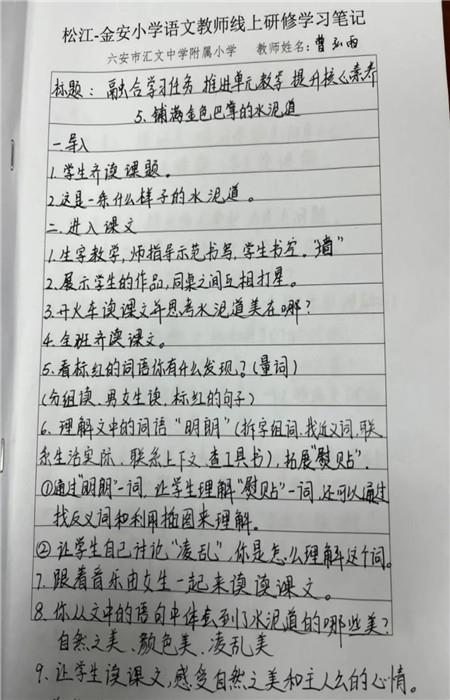 松江-金安小学语文教师线上研修学习笔记
六安市汇文中学附属小学 教师姓名: 曹弘雨
标题: 融合学习任务 推进单元教学 提升核心素养
5. 铺满金色巴掌的水泥道
一.导入
1.学生齐读课题。
2.这是一条什么样子的水泥道。
二.进入课文
1.生字教学,师指导示范书写,学生书空。"墙"
2.展示学生的作品,同桌之间互相打星。
3.开火车读课文并思考水泥道美在哪?
4.全班齐读课文。
5.看标红的词语你有什么发现?(量词)
(分组读、男女生读、标红的句子)
6.理解文中的词语"明朗"(拆字组词,找近义词,联
系生活实际、联系上下文、查工具书),拓展"熨贴".
①通过"明朗"一词,让学生理解"熨贴"一词,还可以通过
找反义词和利用插图来理解。
②让学生自己讨论"凌乱",你是怎么理解这个词。
7.跟着音乐由女生一起来读读课文。
8.你从文中的语句中体会到了水泥道的哪些美?
自然之美、颜色美、凌乱美
9.让学生读课文,感受自然之美和主人公的心情。